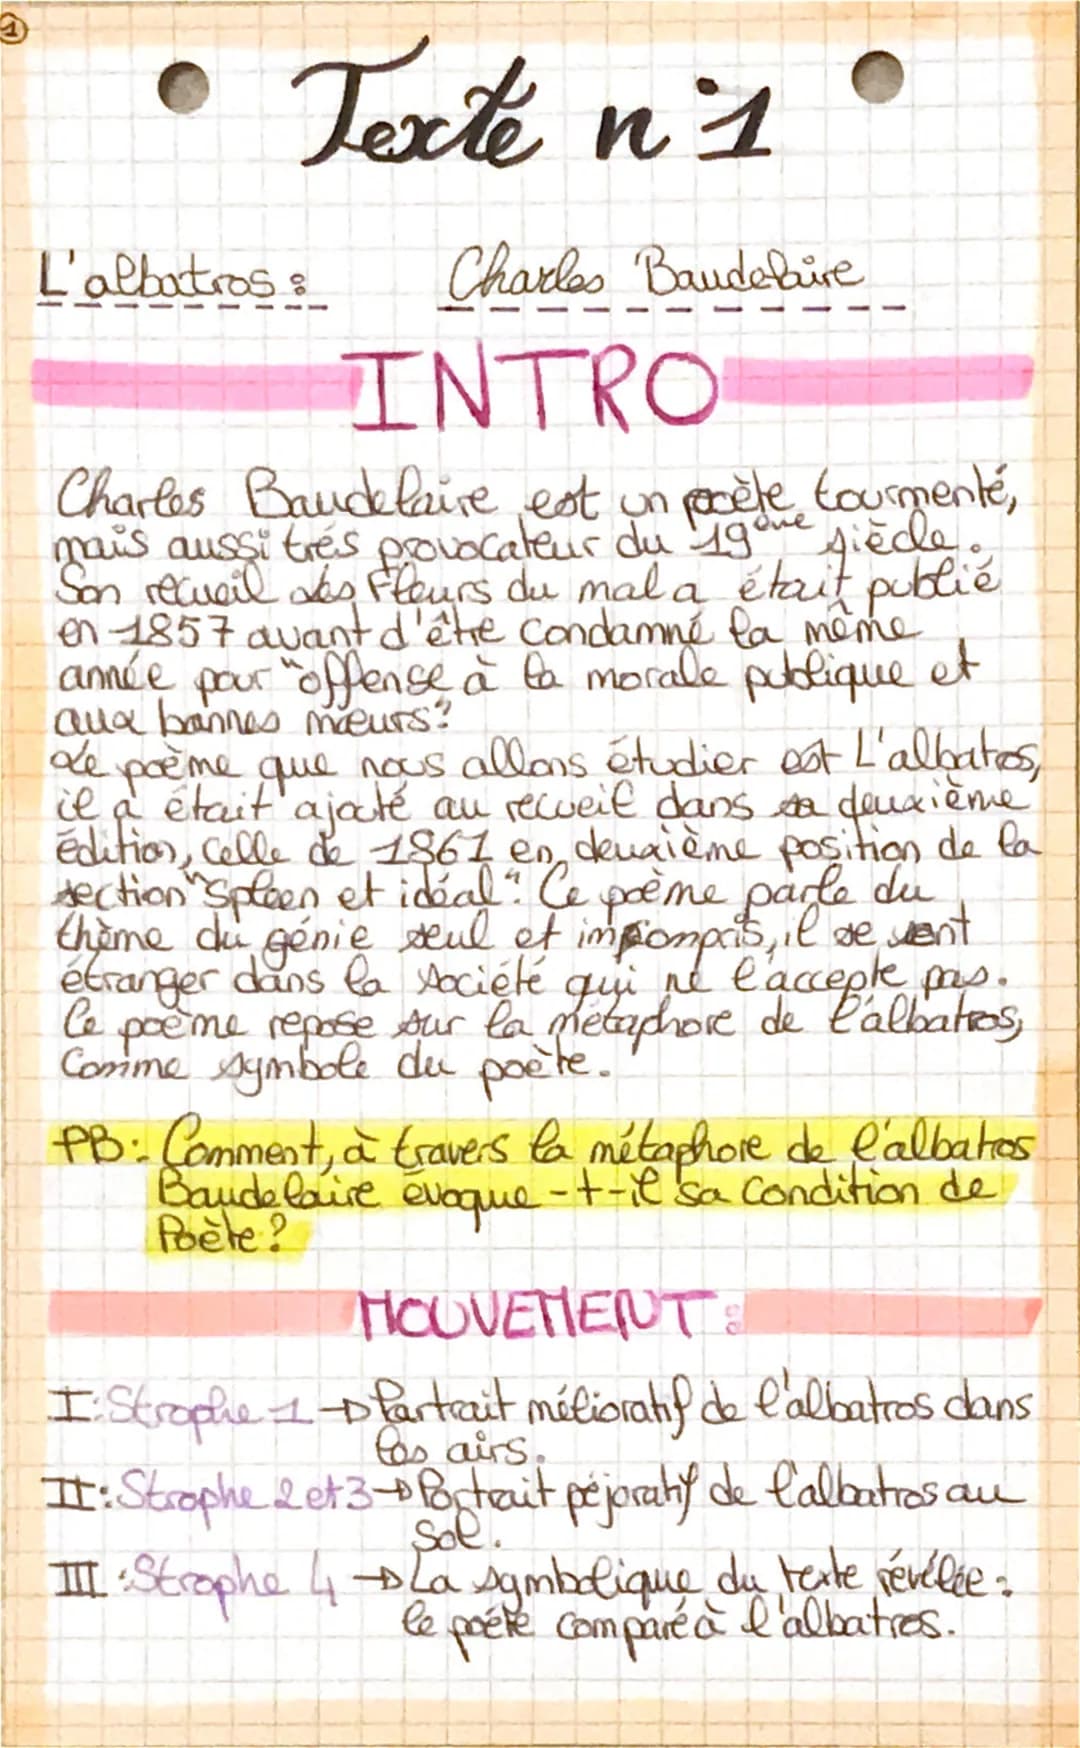 1
Texte n°1
L'albatros : Charles Baudelaire
INTRO
Charles Baudelaire est un poète tourmenté,
mais aussi très provocateur du 19ème siècle.
Son recueil Les Fleurs du mal a était publié
en 1857 avant d'être condamné la même
année pour "offense à la morale publique et
aux bonnes mœurs".
Le poème que nous allons étudier est L'albatros,
il a était ajouté au recueil dans sa deuxième
édition, celle de 1861 en deuxième position de la
section "Spleen et idéal". Ce poème parle du
thème du génie seul et incompris, il se sent
étranger dans la société qui ne l'accepte pas.
Ce poème repose sur la métaphore de l'albatros,
comme symbole du poète.
PB: Comment, à travers la métaphore de l'albatros
Baudelaire évoque-t-il sa condition de
Poète ?
MOUVEMENT :
I: Strophe 1 → Portrait mélioratif de l'albatros dans
les airs.
II: Strophe 2 et 3 → Portrait péjoratif de l'albatros au
sol.
III: Strophe 4 → La symbolique du texte révélée :
le poète comparé à l'albatros.